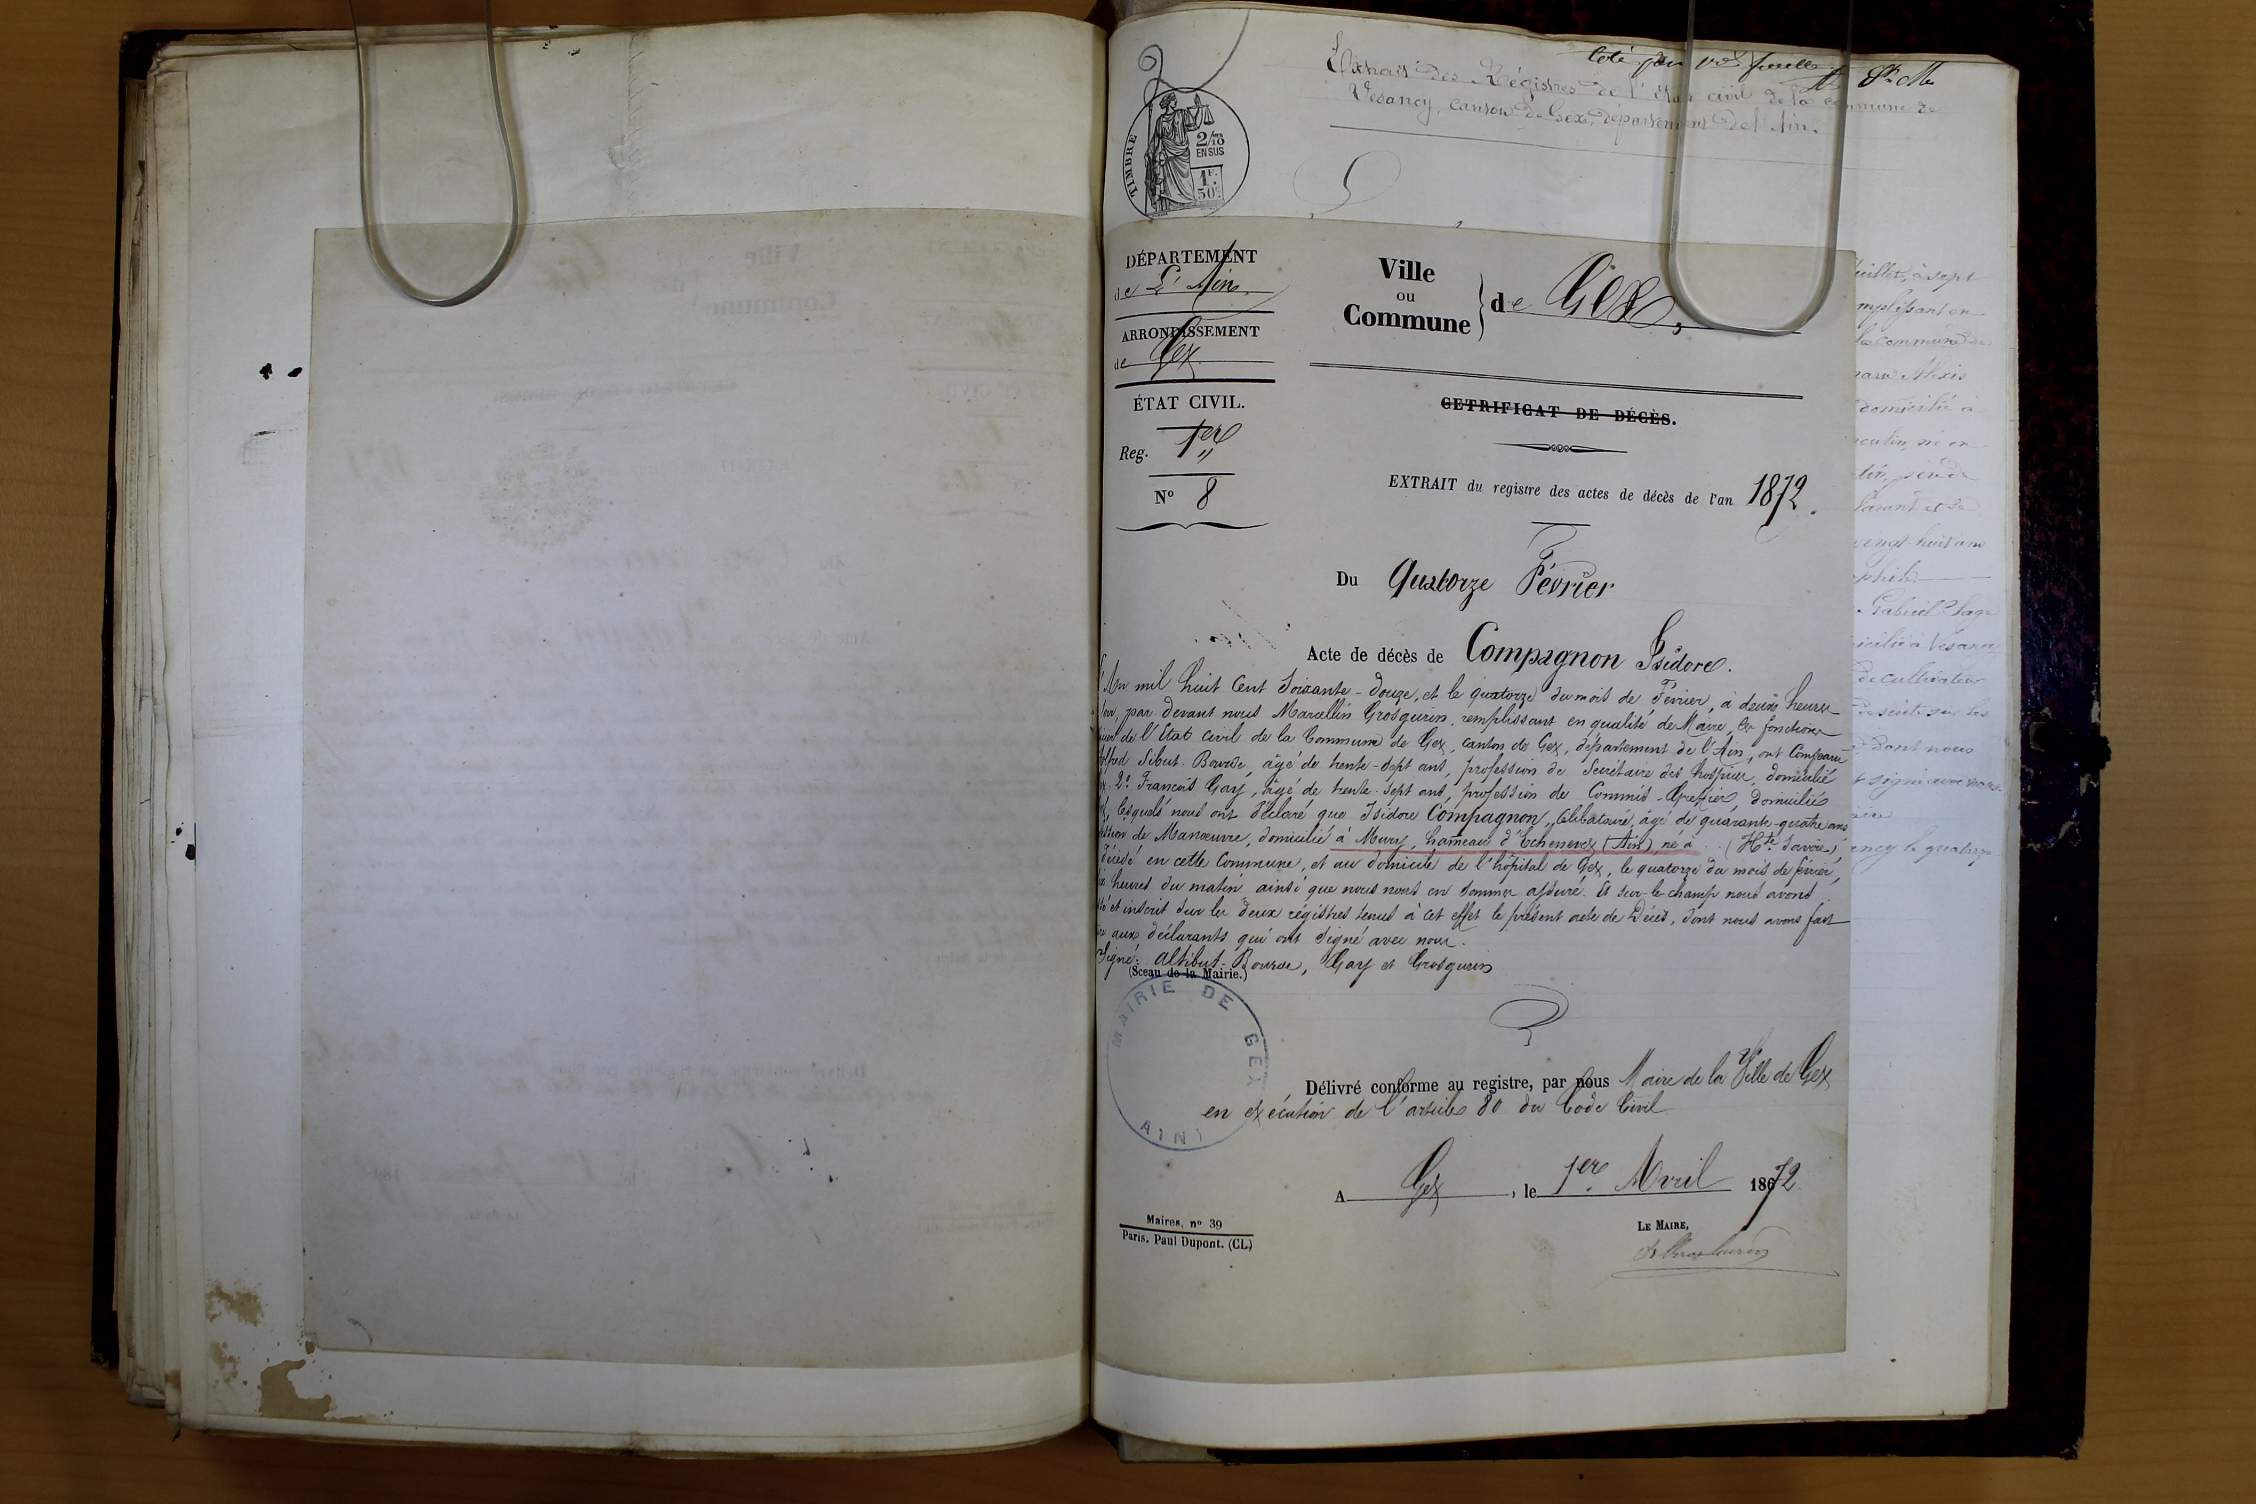 Coté par
Extrait des Régistres de l'état civil de la commune de
Vesancy, Canton de Gex, département de l'Ain.
TIMBRE
2/10
EN SUS
1F.
50c.
DÉPARTEMENT
de L'Ain
ARRONDISSEMENT
de Gex
ÉTAT CIVIL.
Reg. 1er
No 8
Ville
ou
Commune
de Gex,
CETRIFICAT DE DÉCÈS.
EXTRAIT du registre des actes de décès de l'an 1872.
Du Quatorze Février
Acte de décès de Compagnon Isidore.
l'An mil huit Cent Soixante-douze, et le quatorze du mois de Février, à deux heures
par devant nous Marcellin Grosgurin, remplissant en qualité de Maire, les fonctions
de l'Etat civil de la Commune de Gex, canton de Gex, département de l'Ain, ont Comparu
Sibut-Bourde, âgé de trente-sept ans, profession de Secrétaire des hospices, domicilié
2o François Gay, âgé de trente-sept ans, profession de Commis-Greffier, domicilié
lesquels nous ont déclaré que Isidore Compagnon, Célibataire, âgé de quarante-quatre ans
de Manœuvre, domicilié à Mury, hameau d'Echenevex (Ain), né à .. (Hte Savoie)
décédé en cette Commune, et au domicile de l'hôpital de Gex, le quatorze du mois de février,
heures du matin ainsi que nous nous en sommes assuré. Et sur-le-champ nous avons
et inscrit sur les deux régistres tenus à cet effet le présent acte de Décès, dont nous avons fait
aux déclarants qui ont signé avec nous.
Signé: Alf Sibut-Bourde, Gay et Grosgurin
(Sceau de la Mairie.)
MAIRIE DE GEX
AIN
Délivré conforme au registre, par nous Maire de la Ville de Gex
en exécution de l'article 80 du Code Civil
A Gex, le 1er Avril 1872
Maires, no 39
Paris. Paul Dupont. (CL)
LE MAIRE,
juillet, à sept
remplissant en
la commune de
Alexis
domicilié à
né en
vingt-huit ans
Gabriel
domicilié à Vesancy
de cultivateur
dont nous
signé avec nous
le quatorze